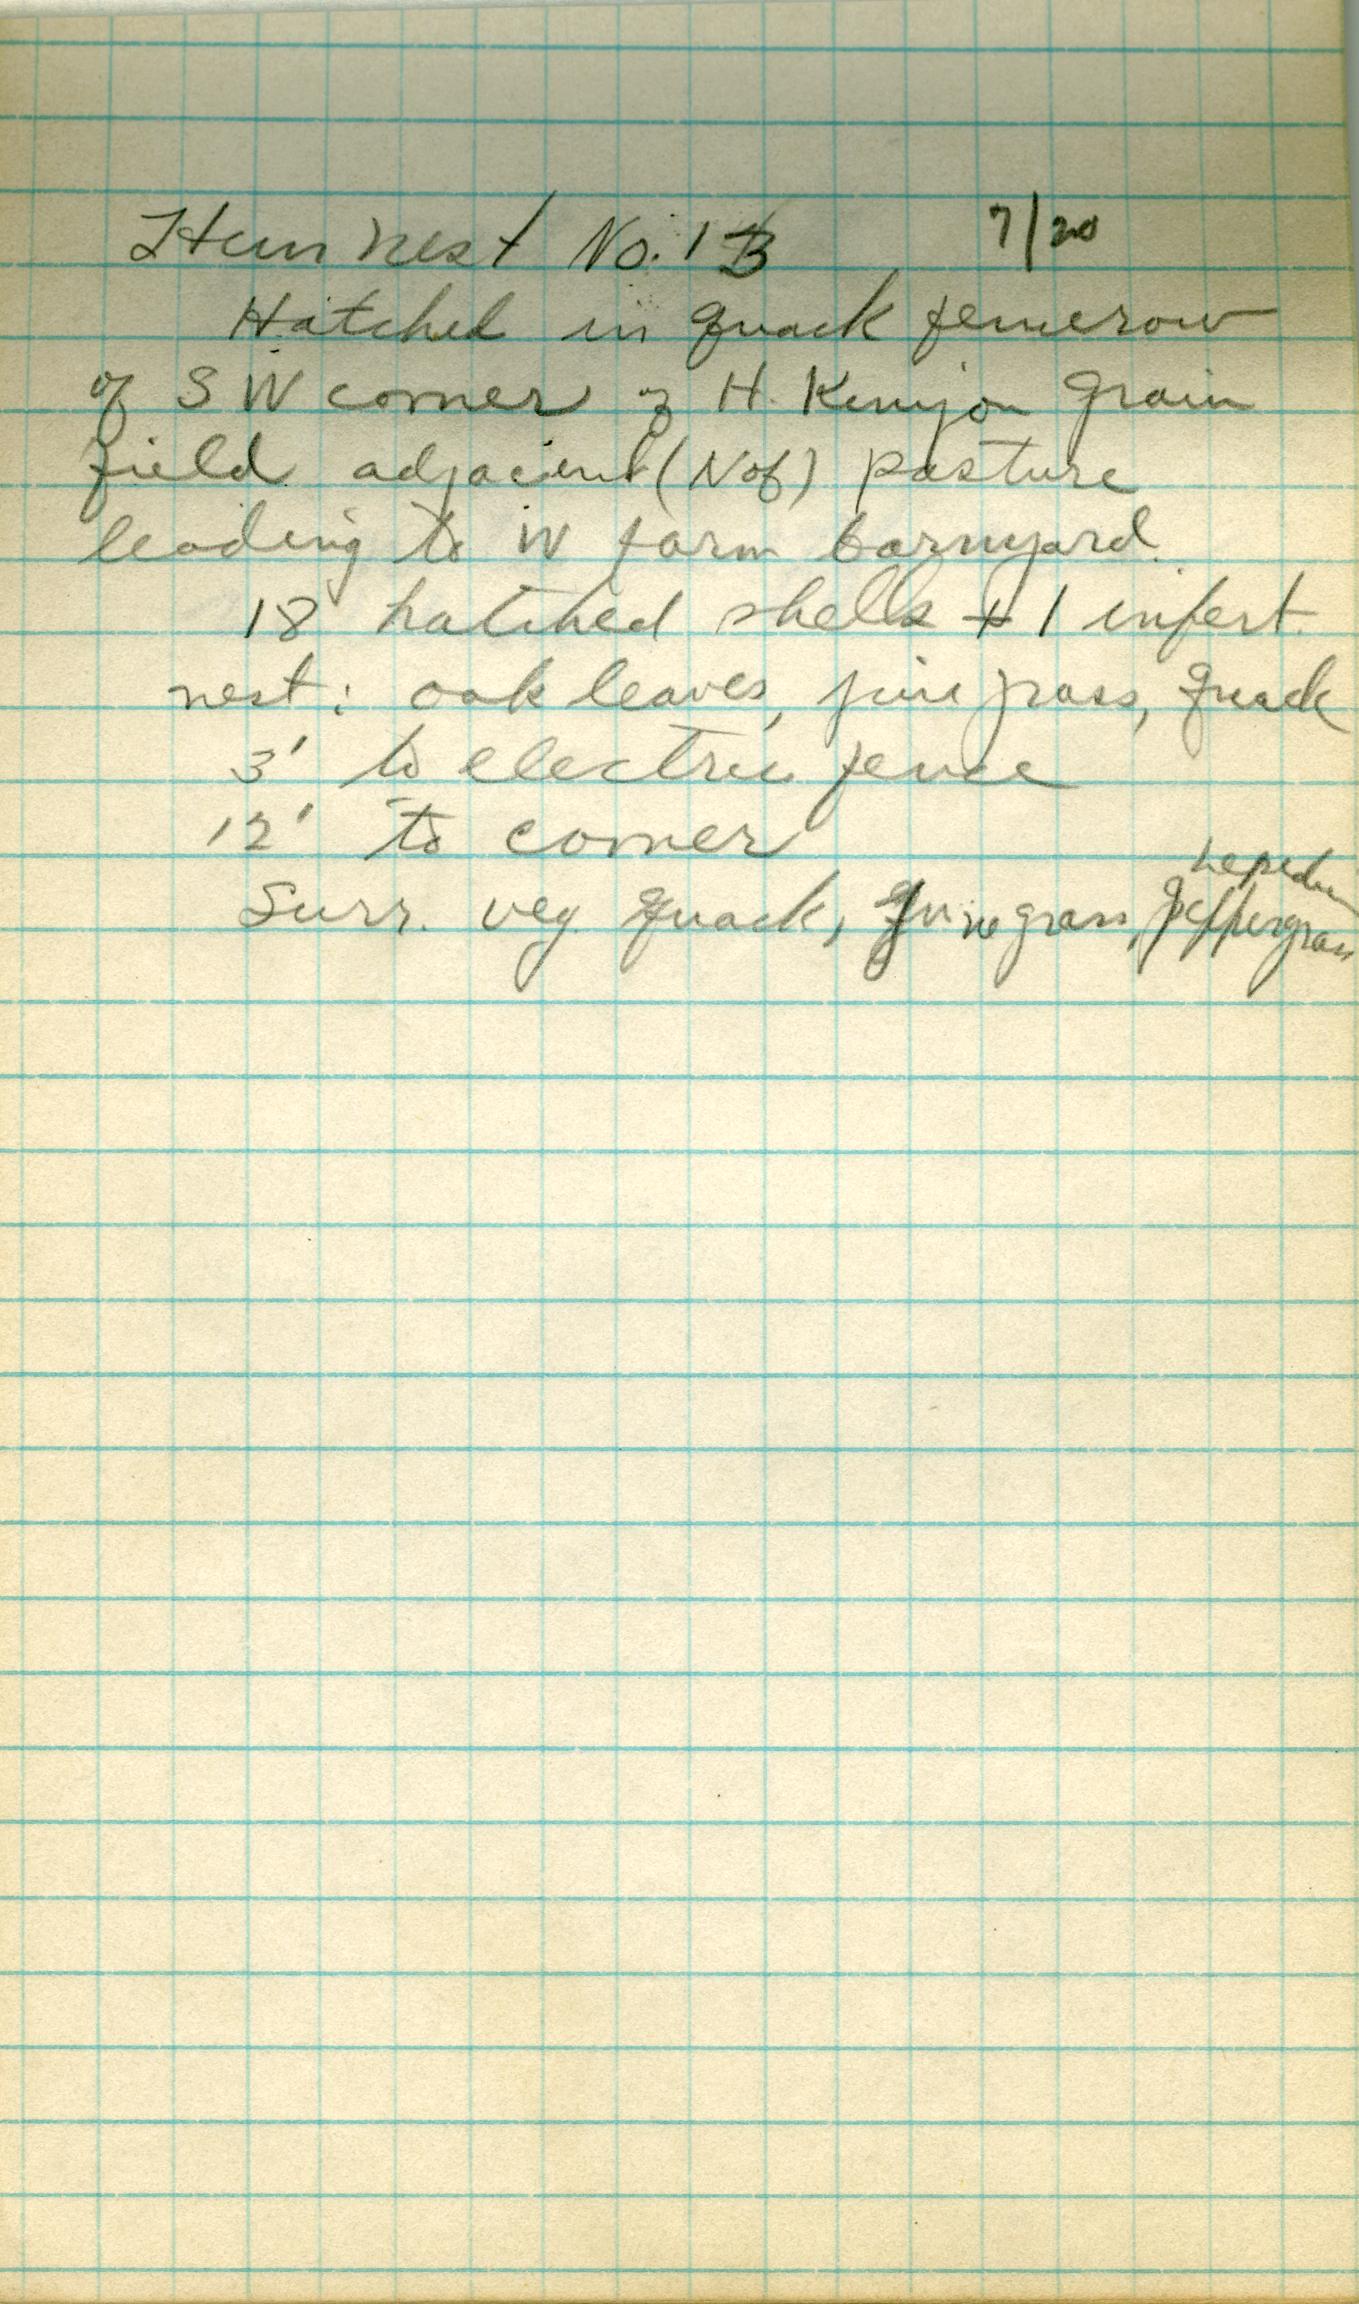 Hun nest No. 1 B 7/20
Hatched in quack fencerow
of SW corner of H. Kenyon grain
field adjacent (N of) pasture
leading to W farm barnyard.
18 hatched shells + 1 infert.
nest: oak leaves, june grass, quack
3' to electric fence
12' to corner
Lepedium
Surr. veg. quack, June grass, peppergrass